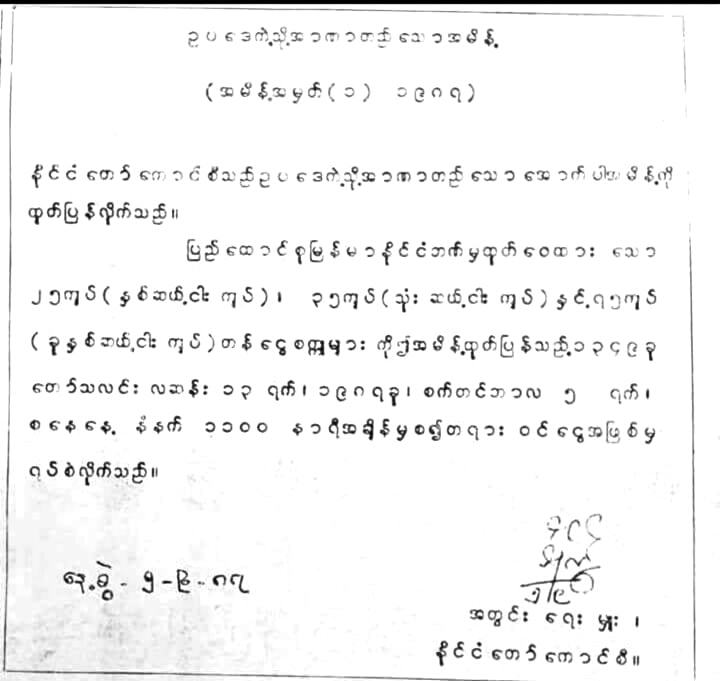 ဥပဒေကဲ့သို့အာဏာတည်သောအမိန့်
(အမိန့်အမှတ်(၁) ၁၉၈၇)
နိုင်ငံတော်ကောင်စီသည်ဥပဒေကဲ့သို့အာဏာတည်သောအောက်ပါအမိန့်ကို
ထုတ်ပြန်လိုက်သည်။
ပြည်ထောင်စုမြန်မာနိုင်ငံဘဏ်မှထုတ်ဝေထားသော
၂၅ကျပ်(နှစ်ဆယ့်ငါးကျပ်)၊ ၃၅ကျပ်(သုံးဆယ့်ငါးကျပ်)နှင့်၇၅ကျပ်
(ခုနှစ်ဆယ့်ငါးကျပ်)တန်ငွေစက္ကူများကိုဤအမိန့်ထုတ်ပြန်သည့်၁၃၄၉ခု
တော်သလင်းလဆန်း ၁၃ ရက်၊ ၁၉၈၇ခု၊ စက်တင်ဘာလ ၅ ရက်၊
စနေနေ့ နံနက် ၁၁၀၀ နာရီအချိန်မှစ၍တရားဝင်ငွေအဖြစ်မှ
ရပ်စဲလိုက်သည်။
နေ့စွဲ - ၅-၉-၈၇
အတွင်းရေးမှူး၊
နိုင်ငံတော်ကောင်စီ။